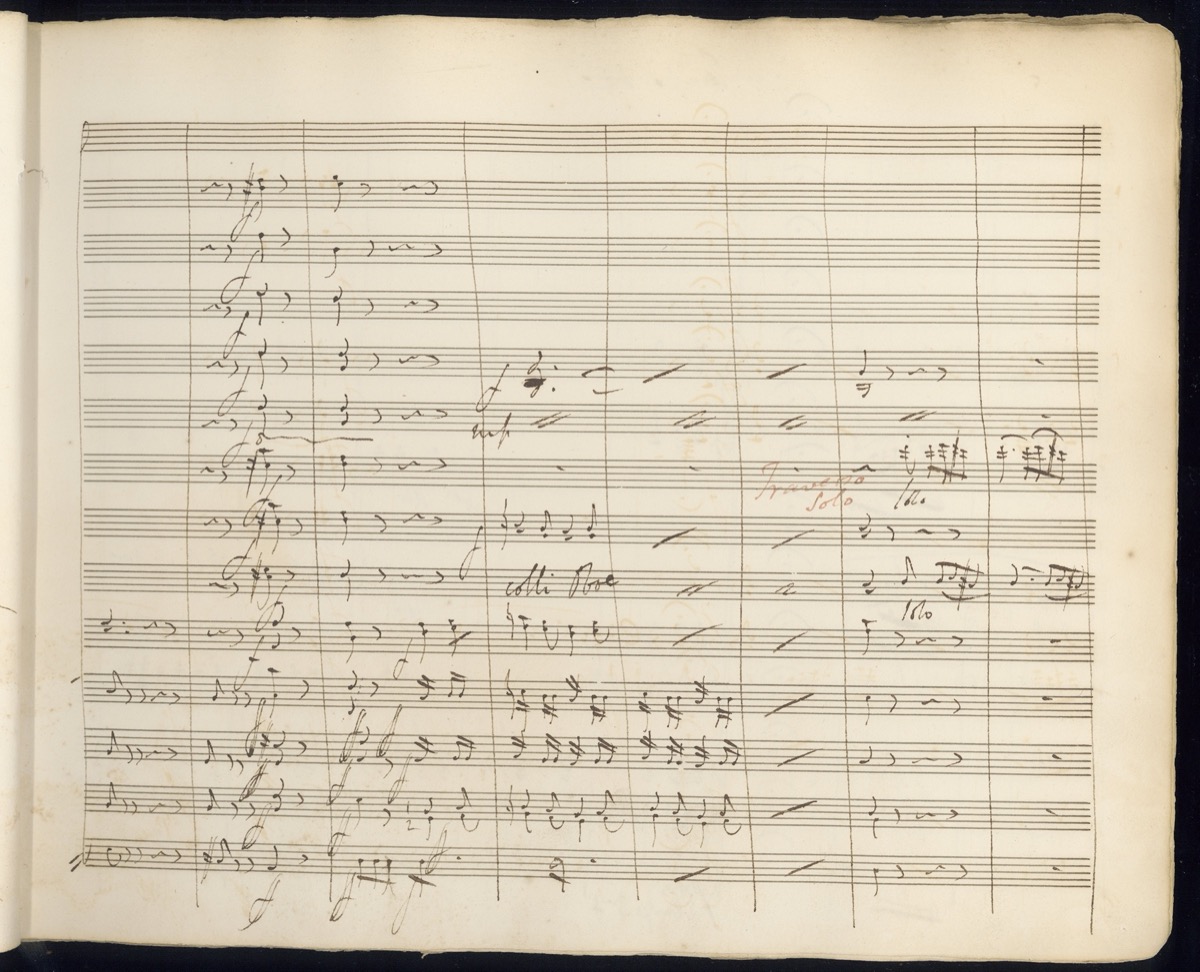 Traverso
Solo
Solo
colli Oboe
Solo